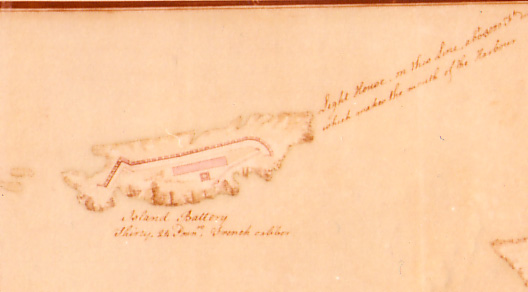 Light House, on this Line, about
which makes the mouth of the Harbour
Island Battery
Thirty, 24 Poun.rs French caliber